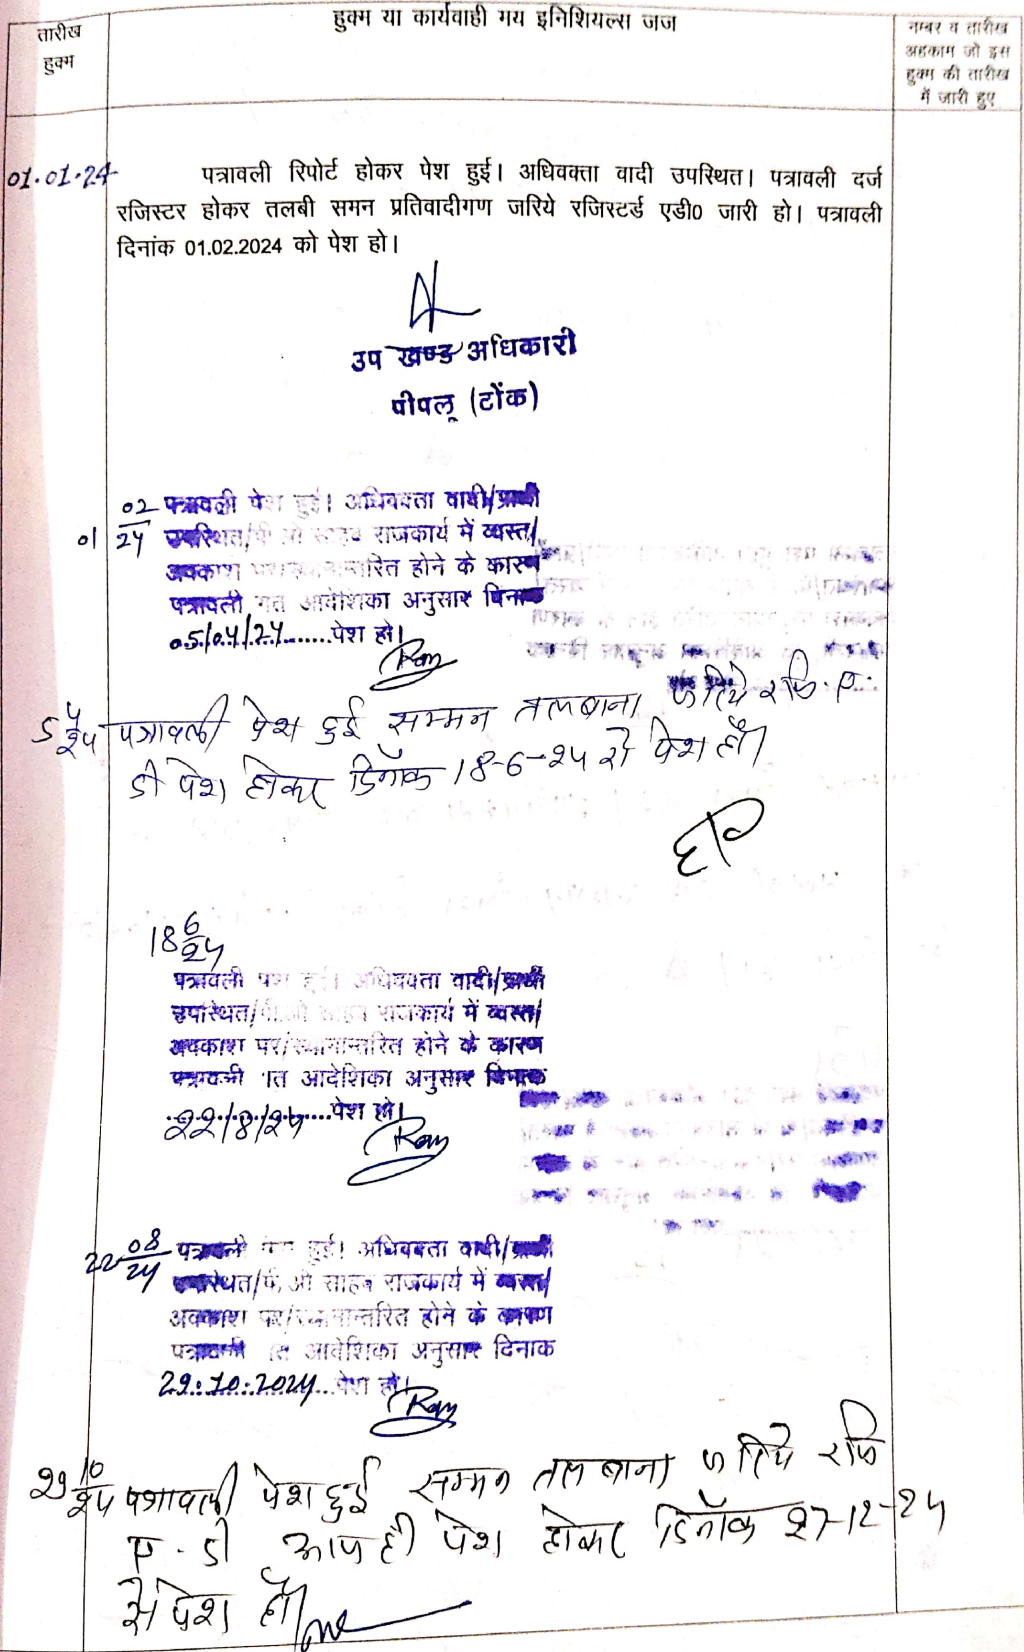 तारीख
हुक्म
हुक्म या कार्यवाही मय इनिशियल्स जज
नम्बर व तारीख
अहकाम जो इस
हुक्म की तारीख
में जारी हुए
01.01.24
पत्रावली रिपोर्ट होकर पेश हुई। अधिवक्ता वादी उपस्थित। पत्रावली दर्ज
रजिस्टर होकर तलबी समन प्रतिवादीगण जरिये रजिस्टर्ड एडी0 जारी हो। पत्रावली
दिनांक 01.02.2024 को पेश हो।
उप खण्ड अधिकारी
पीपलू (टोंक)
01 02/24 पत्रावली पेश हुई। अधिवक्ता वादी/प्रार्थी
उपस्थित/पी.ओ साहब राजकार्य में व्यस्त/
अवकाश पर/स्थानान्तरित होने के कारण
पत्रावली गत आदेशिका अनुसार दिनाक
05/04/24......पेश हो।
5 4/24 पत्रावली पेश हुई सम्मन तलबाना जरिये रजि. ए.
डी पेश होकर दिनाँक 18-6-24 से पेश हो।
18 6/24
पत्रावली पेश हुई। अधिवक्ता वादी/प्रार्थी
उपस्थित/पी.ओ साहब राजकार्य में व्यस्त/
अवकाश पर/स्थानान्तरित होने के कारण
पत्रावली गत आदेशिका अनुसार दिनाक
22/8/24...पेश हो।
22 08/24 पत्रावली पेश हुई। अधिवक्ता वादी/प्रार्थी
उपस्थित/पी.ओ साहब राजकार्य में व्यस्त/
अवकाश पर/स्थानान्तरित होने के कारण
पत्रावली गत आदेशिका अनुसार दिनाक
29.10.2024...पेश हो।
29 10/24 पत्रावली पेश हुई सम्मन तलबाना जरिये रजि
ए. डी आज ही पेश होकर दिनाँक 27-12-24
से पेश हो।